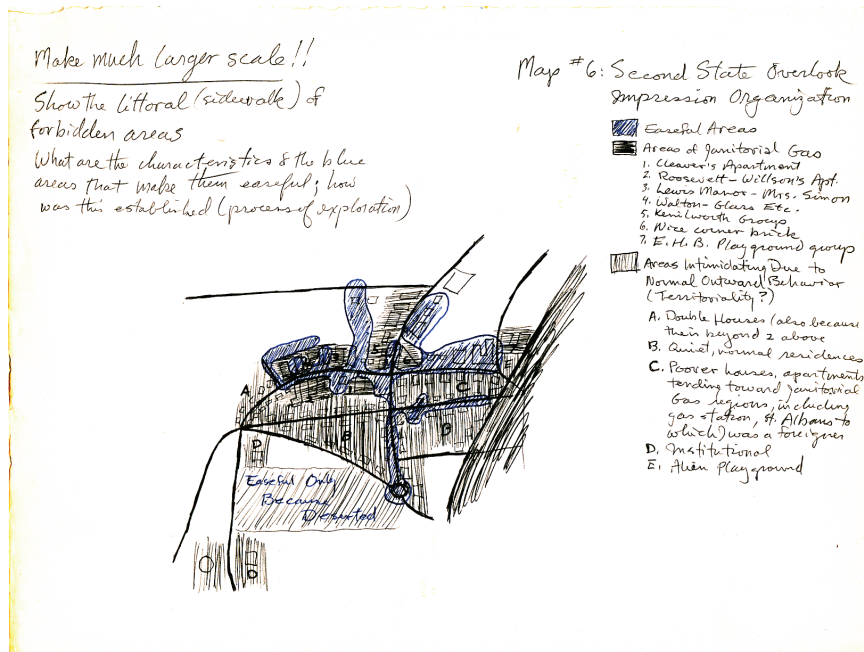 Make much larger scale!!
Show the littoral (sidewalk) of
forbidden areas
What are the characteristics of the blue
areas that make them easeful; how
was this established (process of exploration)
Map #6: Second State Overlook
Impression Organization
Easeful Areas
Areas of Janitorial Gas
1. Cleaver's Apartment
2. Roosevelt-Willson's Apt.
3. Lewis Manor-Mrs. Simon
4. Walton-Glass Etc.
5. Kenilworth Group
6. Nice corner brick
7. E.H.B. Playground group
Areas Intimidating Due to
Normal Outward Behavior
(Territoriality?)
A. Double Houses (also because
their beyond 2 above
B. Quiet, normal residences
C. Poorer houses, apartments
tending toward janitorial
Gas regions, including
gas station, St. Albans to
which) was a foreigner
D. Institutional
E. Alien Playground
A
C
E
B
B
D
Easeful Only
Because
Deserted
D